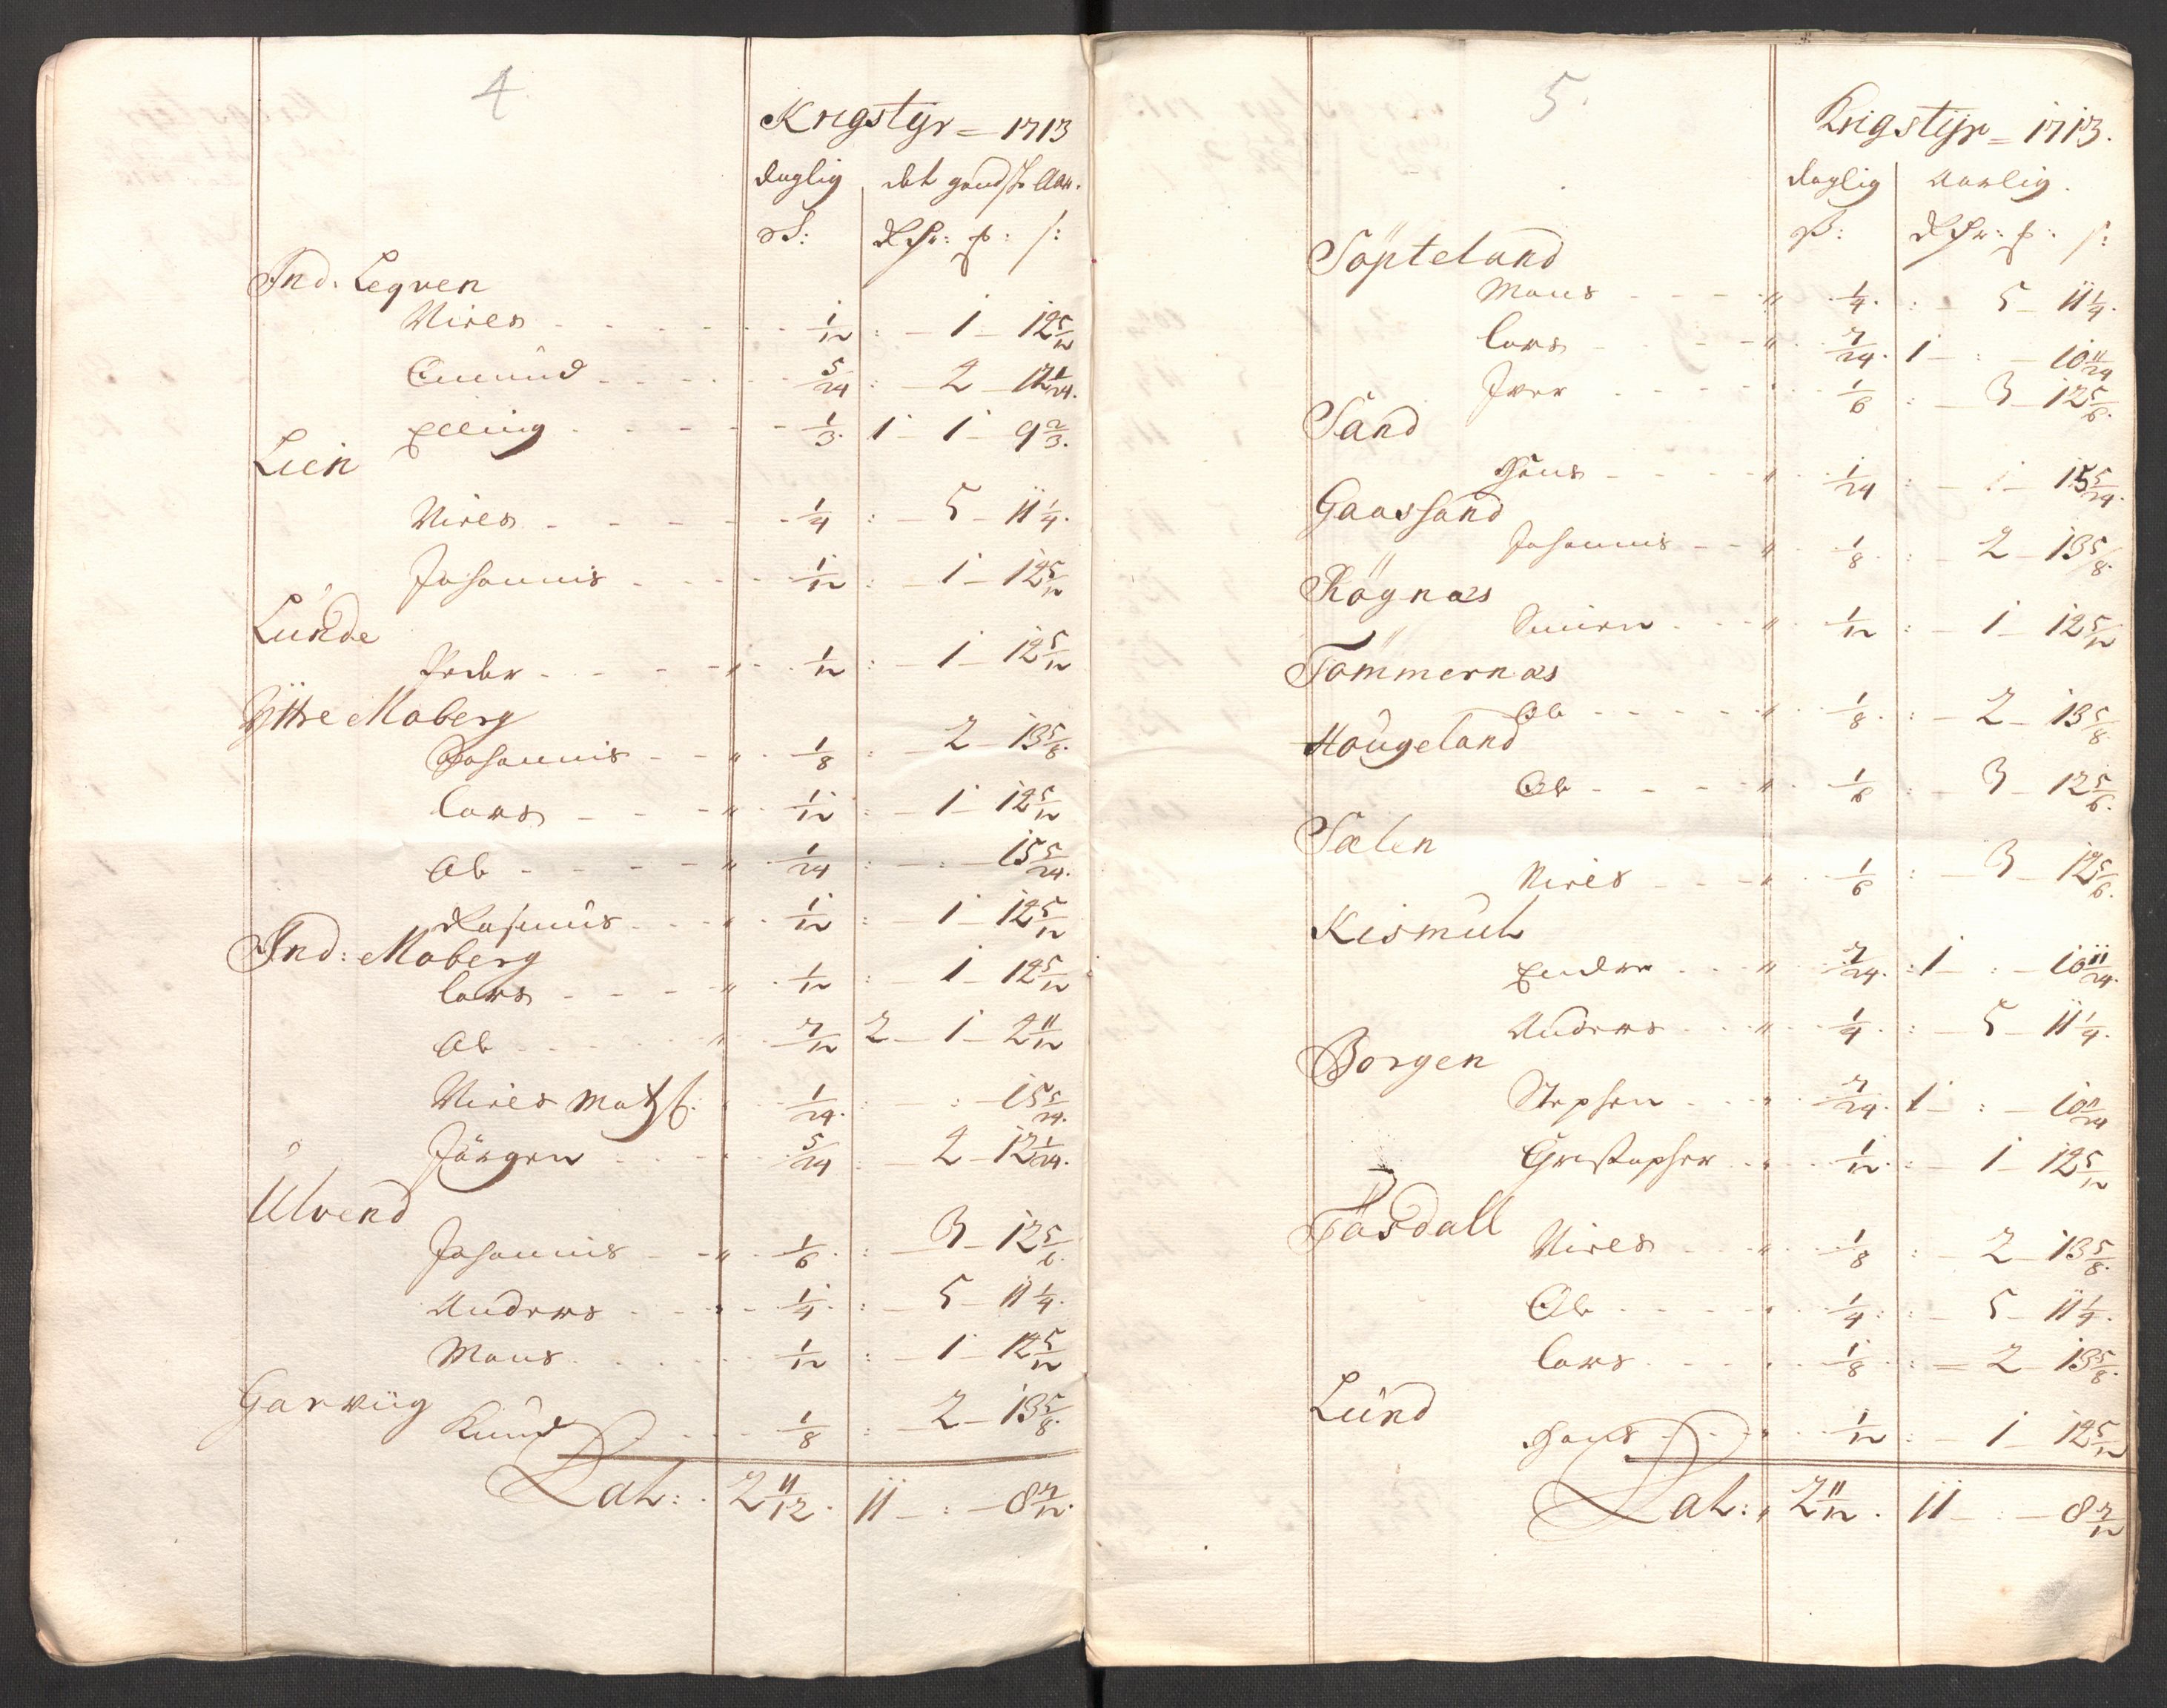 4
Krigstÿr = 1713
daglig det gandske Aar.
ß: dlr: ℔: s:
Ind. Leqven
Niels 1/12 : 1 12 5/12
Emund 5/24 : 2 12 1/24.
Elling 1/3. 1 1 9 2/3.
Lien
Niels 1/4 : 5 11 1/4.
Johannis 1/12 : 1 12 5/12
Lunde
Peder 1/12 : 1 12 5/12
Ÿttre Moberg
Johannis 1/8 : 2 13 5/8.
Lars 1/12 : 1 12 5/12
Ole 1/24 : : 15 5/24.
Rasmus 1/12 : 1 12 5/12
Ind: Moberg
Lars 1/12 : 1 12 5/12
Ole 7/12 2 1 2 11/12
Niels Matss: 1/24. : 15 5/24.
Jörgen 5/24 : 2 12 1/24.
Ulvend
Johannis 1/6 : 3 12 5/6.
Anders 1/4. : 5 11 1/4.
Mons 1/12 : 1 12 5/12
Garviig
Knud 1/8 : 2 13 5/8.
Lat: 2 11/12. 11 : 8 7/12.
5.
Krigstÿr = 1713.
daglig Aarlig.
ß: dlr: ℔: s:
Söpteland
Mons 1/4. : 5 11 1/4.
Lars 7/24. 1 : 10 11/24
Iver 1/6 : 3 12 5/6.
Sand
Hans 1/24 : 15 5/24.
Gaassand
Johannis 1/8. : 2 13 5/8.
Rögnæs
Simen 1/12 : 1 12 5/12
Tömmernæs
Ole 1/8. : 2 13 5/8
Hougeland
Ole 1/6 : 3 12 5/6.
Sælen
Niels 1/6 : 3 12 5/6.
Kismul
Endre 7/24. : 1 : 10 11/24.
Anders 1/4. : 5 11 1/4.
Borgen
Stephen 7/24. 1 : 10 11/24
Christopher 1/12. : 1 12 5/12
Tösdall
Niels 1/8 : 2 13 5/8.
Ole 1/4. : 5 11 1/4.
Lars 1/8 : 2 13 5/8.
Lund
Hans 1/12 : 1 12 5/12
Lat: 2 11/12. 11 : 8 7/12